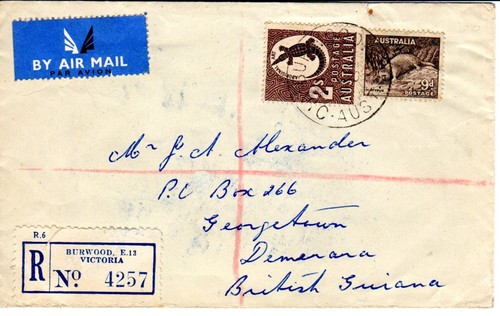 BY AIR MAIL
PAR AVION
2/s POSTAGE AUSTRALIA
AUSTRALIA
9d
POSTAGE
C-AUS
Mr J. A. Alexander
P.O Box 266
Georgetown
Demerara
British Guiana
R.6
R
BURWOOD, E.13
VICTORIA
No. 4257